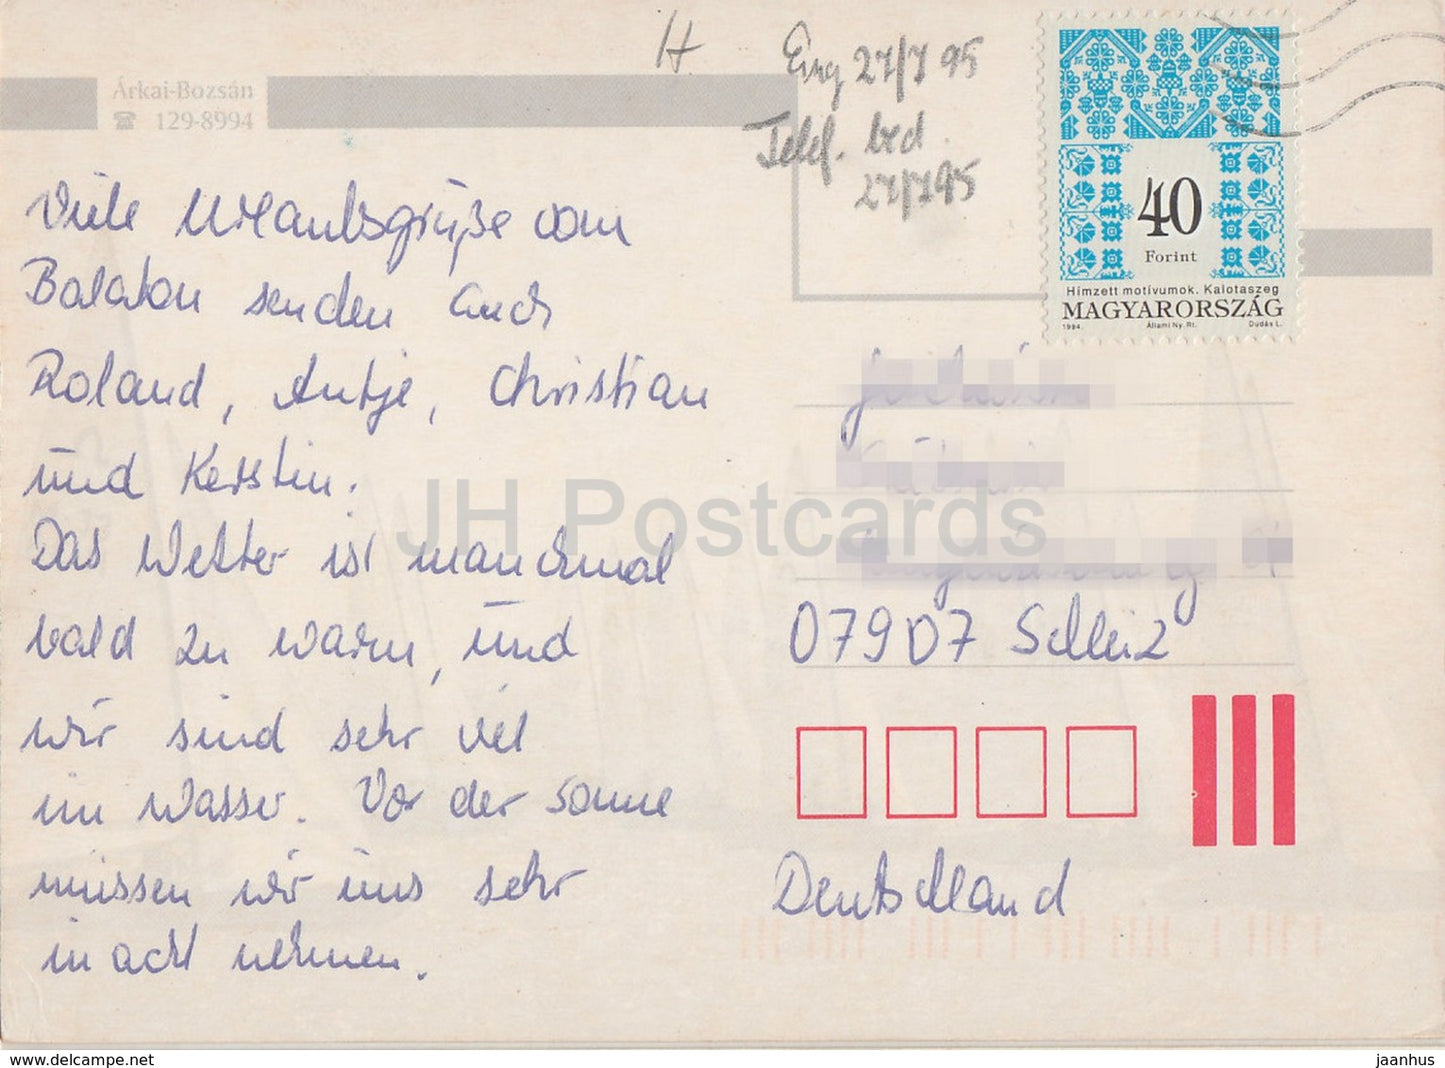 H
Eing 27/7 95
Telef. bed.
27/7 95
Árkai-Bozsán
☎ 129-8994
40
Forint
Hímzett motívumok. Kalotaszeg
MAGYARORSZÁG
1994 Állami Ny. Rt. Dudás L.
Viele Urlaubsgrüße vom
Balaton senden Euch
Roland, Antje, Christian
und Kerstin.
Das Wetter ist manchmal
bald zu warm, und
wir sind sehr viel
im Wasser. Vor der Sonne
müssen wir uns sehr
in acht nehmen.
07907 Schleiz
Deutschland
JH Postcards
www.delcampe.net
jaanhus